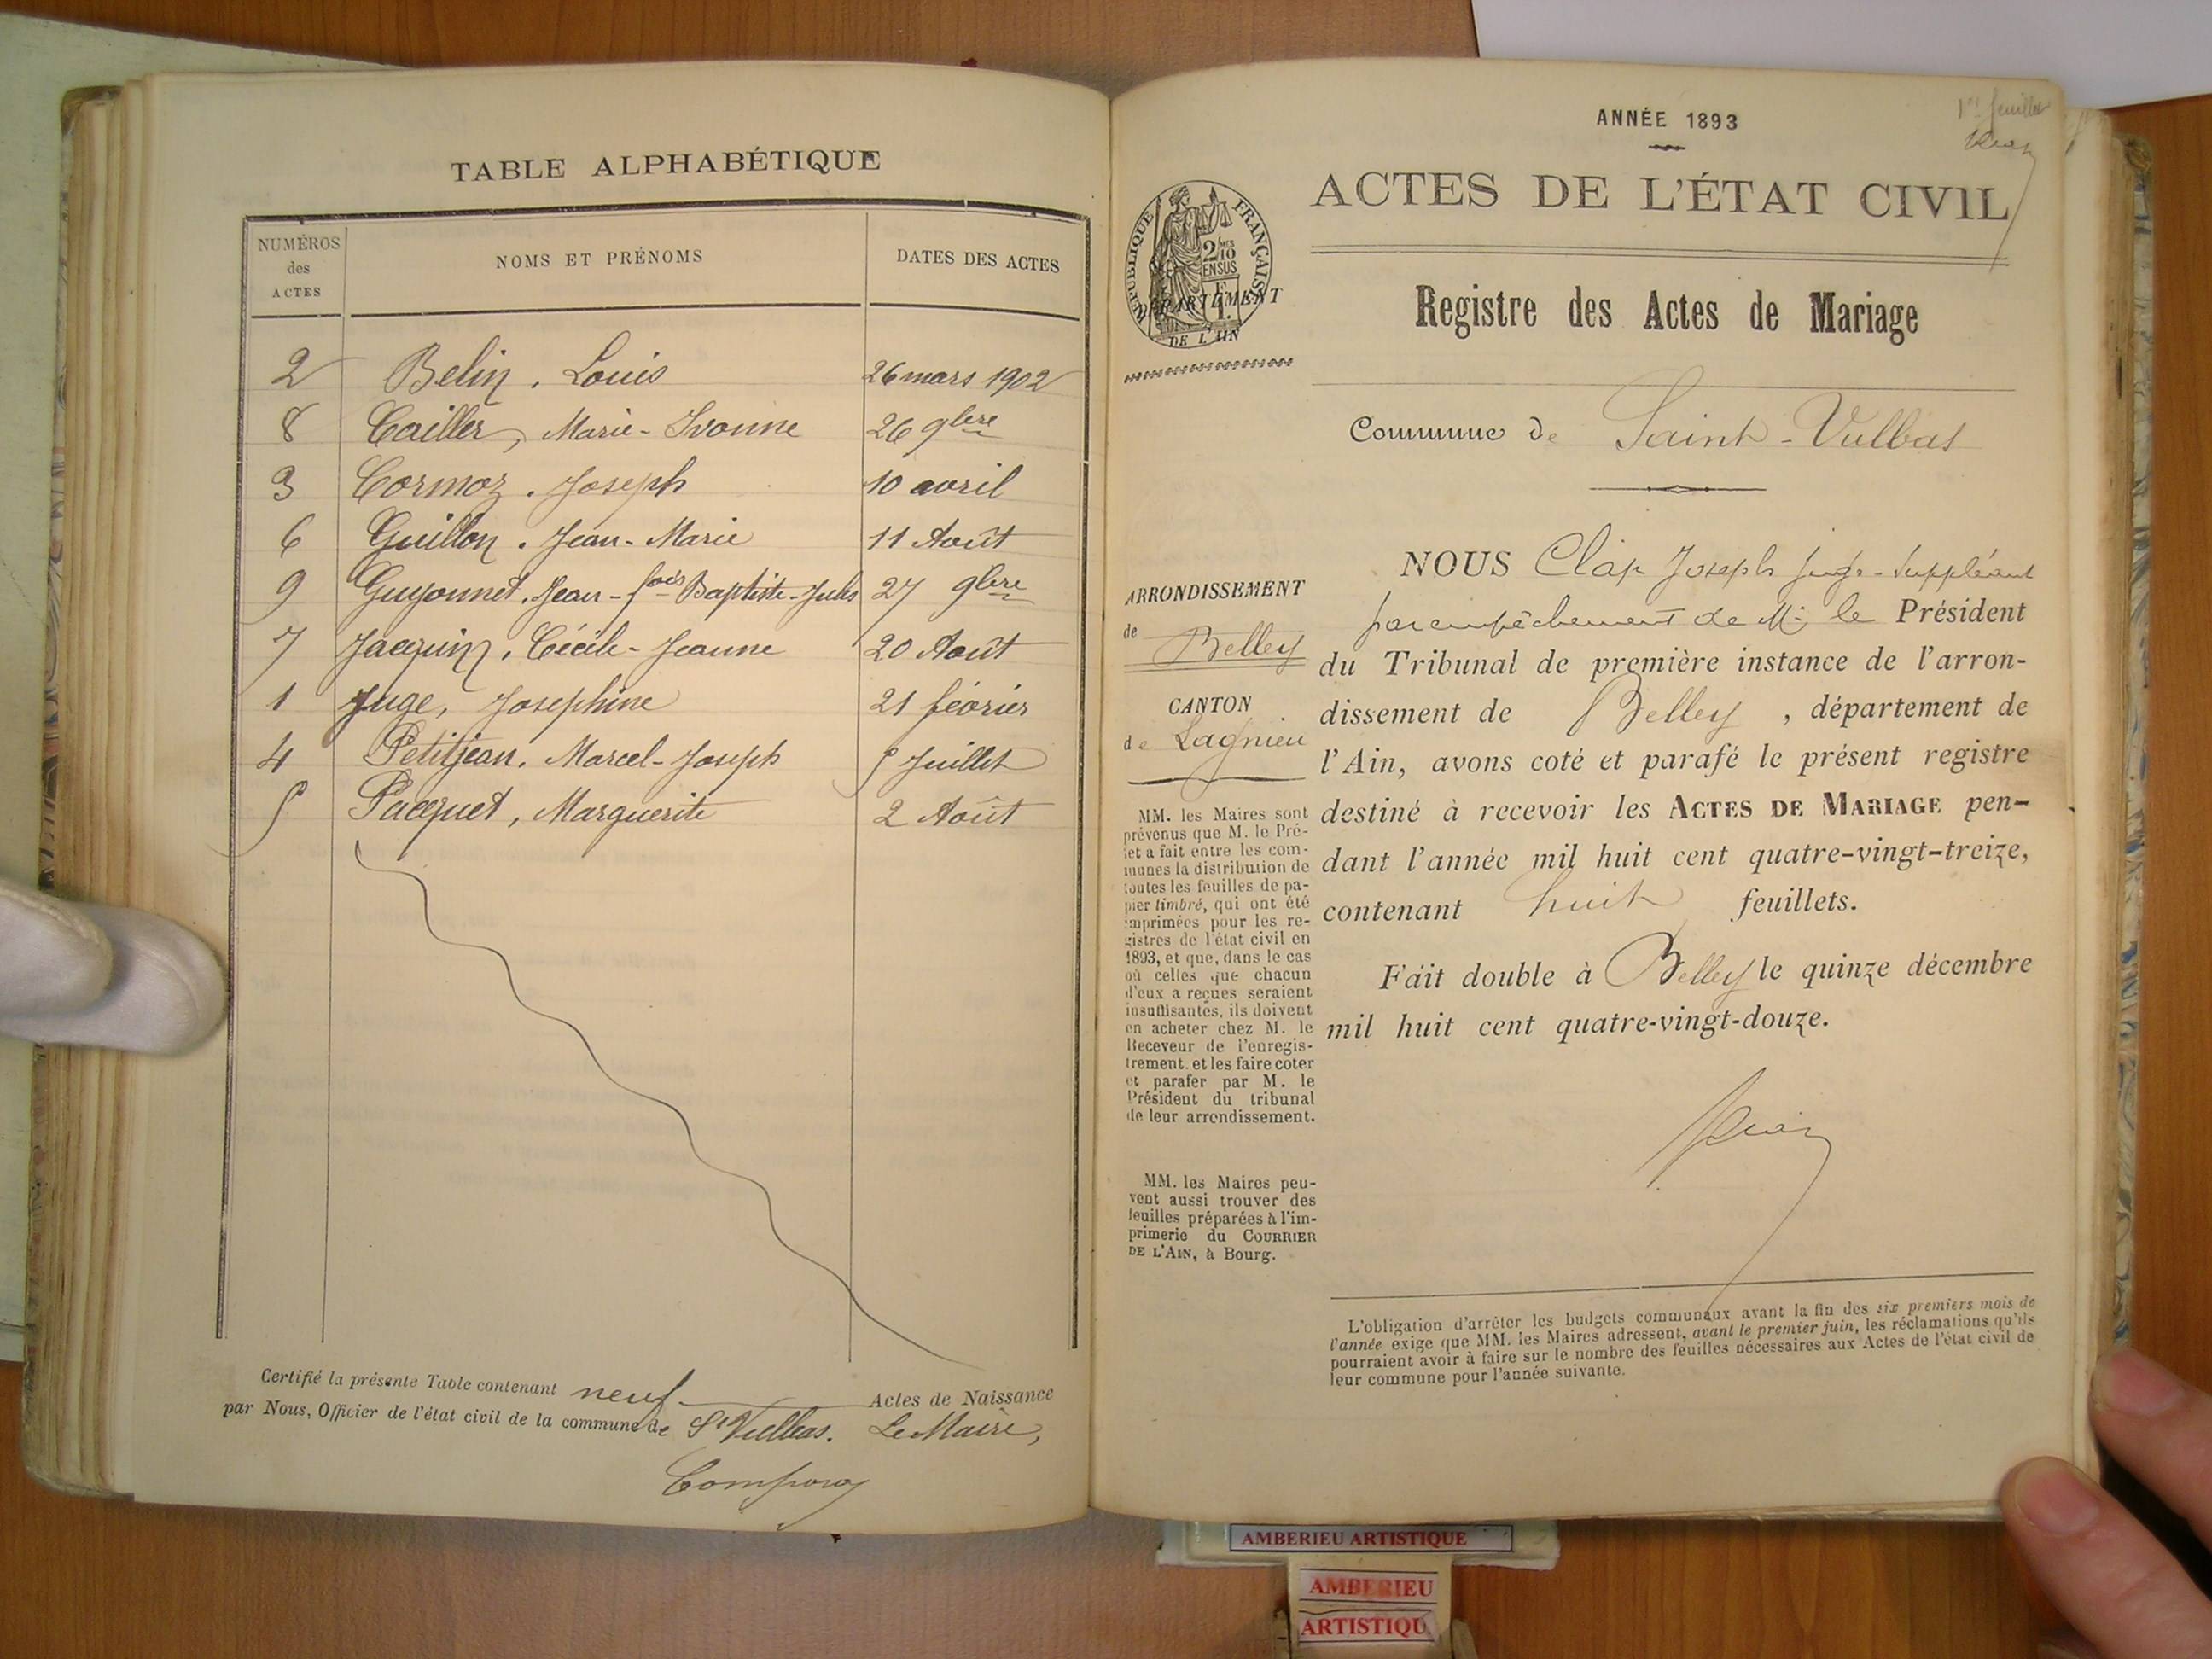 TABLE ALPHABÉTIQUE
NUMÉROS des ACTES
NOMS ET PRÉNOMS
DATES DES ACTES
2 Belin, Louis 26 mars 1902
8 Cailler, Marie-Yvonne 26 9bre
3 Cormoz, Joseph 10 avril
6 Guillon, Jean-Marie 11 Août
9 Guyonnet, Jean-fois Baptiste-Jules 27 9bre
7 Jacquin, Cécile-Jeanne 20 Août
1 Juge, Joséphine 21 février
4 Petitjean, Marcel-Joseph 5 Juillet
5 Pacquet, Marguerite 2 Août
Certifié la présente Table contenant neuf Actes de Naissance
par Nous, Officier de l'état civil de la commune de St Vulbas. Le Maire,
1er feuillet
ANNÉE 1893
ACTES DE L'ÉTAT CIVIL
RÉPUBLIQUE FRANÇAISE
2/10 EN SUS
DÉPARTEMENT
DE L'AIN
Registre des Actes de Mariage
Commune de Saint-Vulbas
ARRONDISSEMENT
de Belley
CANTON
de Lagnieu
MM. les Maires sont
prévenus que M. le Pré-
fet a fait entre les com-
munes la distribution de
toutes les feuilles de pa-
pier timbré, qui ont été
imprimées pour les re-
gistres de l'état civil en
1893, et que, dans le cas
où celles que chacun
d'eux a reçues seraient
insuffisantes, ils doivent
en acheter chez M. le
Receveur de l'enregis-
trement. et les faire coter
et parafer par M. le
Président du tribunal
de leur arrondissement.
MM. les Maires peu-
vent aussi trouver des
feuilles préparées à l'im-
primerie du COURRIER
DE L'AIN, à Bourg.
NOUS Clap Joseph Juge-Suppléant
par empêchement de M. le Président
du Tribunal de première instance de l'arron-
dissement de Belley, département de
l'Ain, avons coté et parafé le présent registre
destiné à recevoir les ACTES DE MARIAGE pen-
dant l'année mil huit cent quatre-vingt-treize,
contenant huit feuillets.
Fait double à Belley le quinze décembre
mil huit cent quatre-vingt-douze.
L'obligation d'arrêter les budgets communaux avant la fin des six premiers mois de
l'année exige que MM. les Maires adressent, avant le premier juin, les réclamations qu'ils
pourraient avoir à faire sur le nombre des feuilles nécessaires aux Actes de l'état civil de
leur commune pour l'année suivante.
AMBERIEU ARTISTIQUE
AMBERIEU
ARTISTIQU